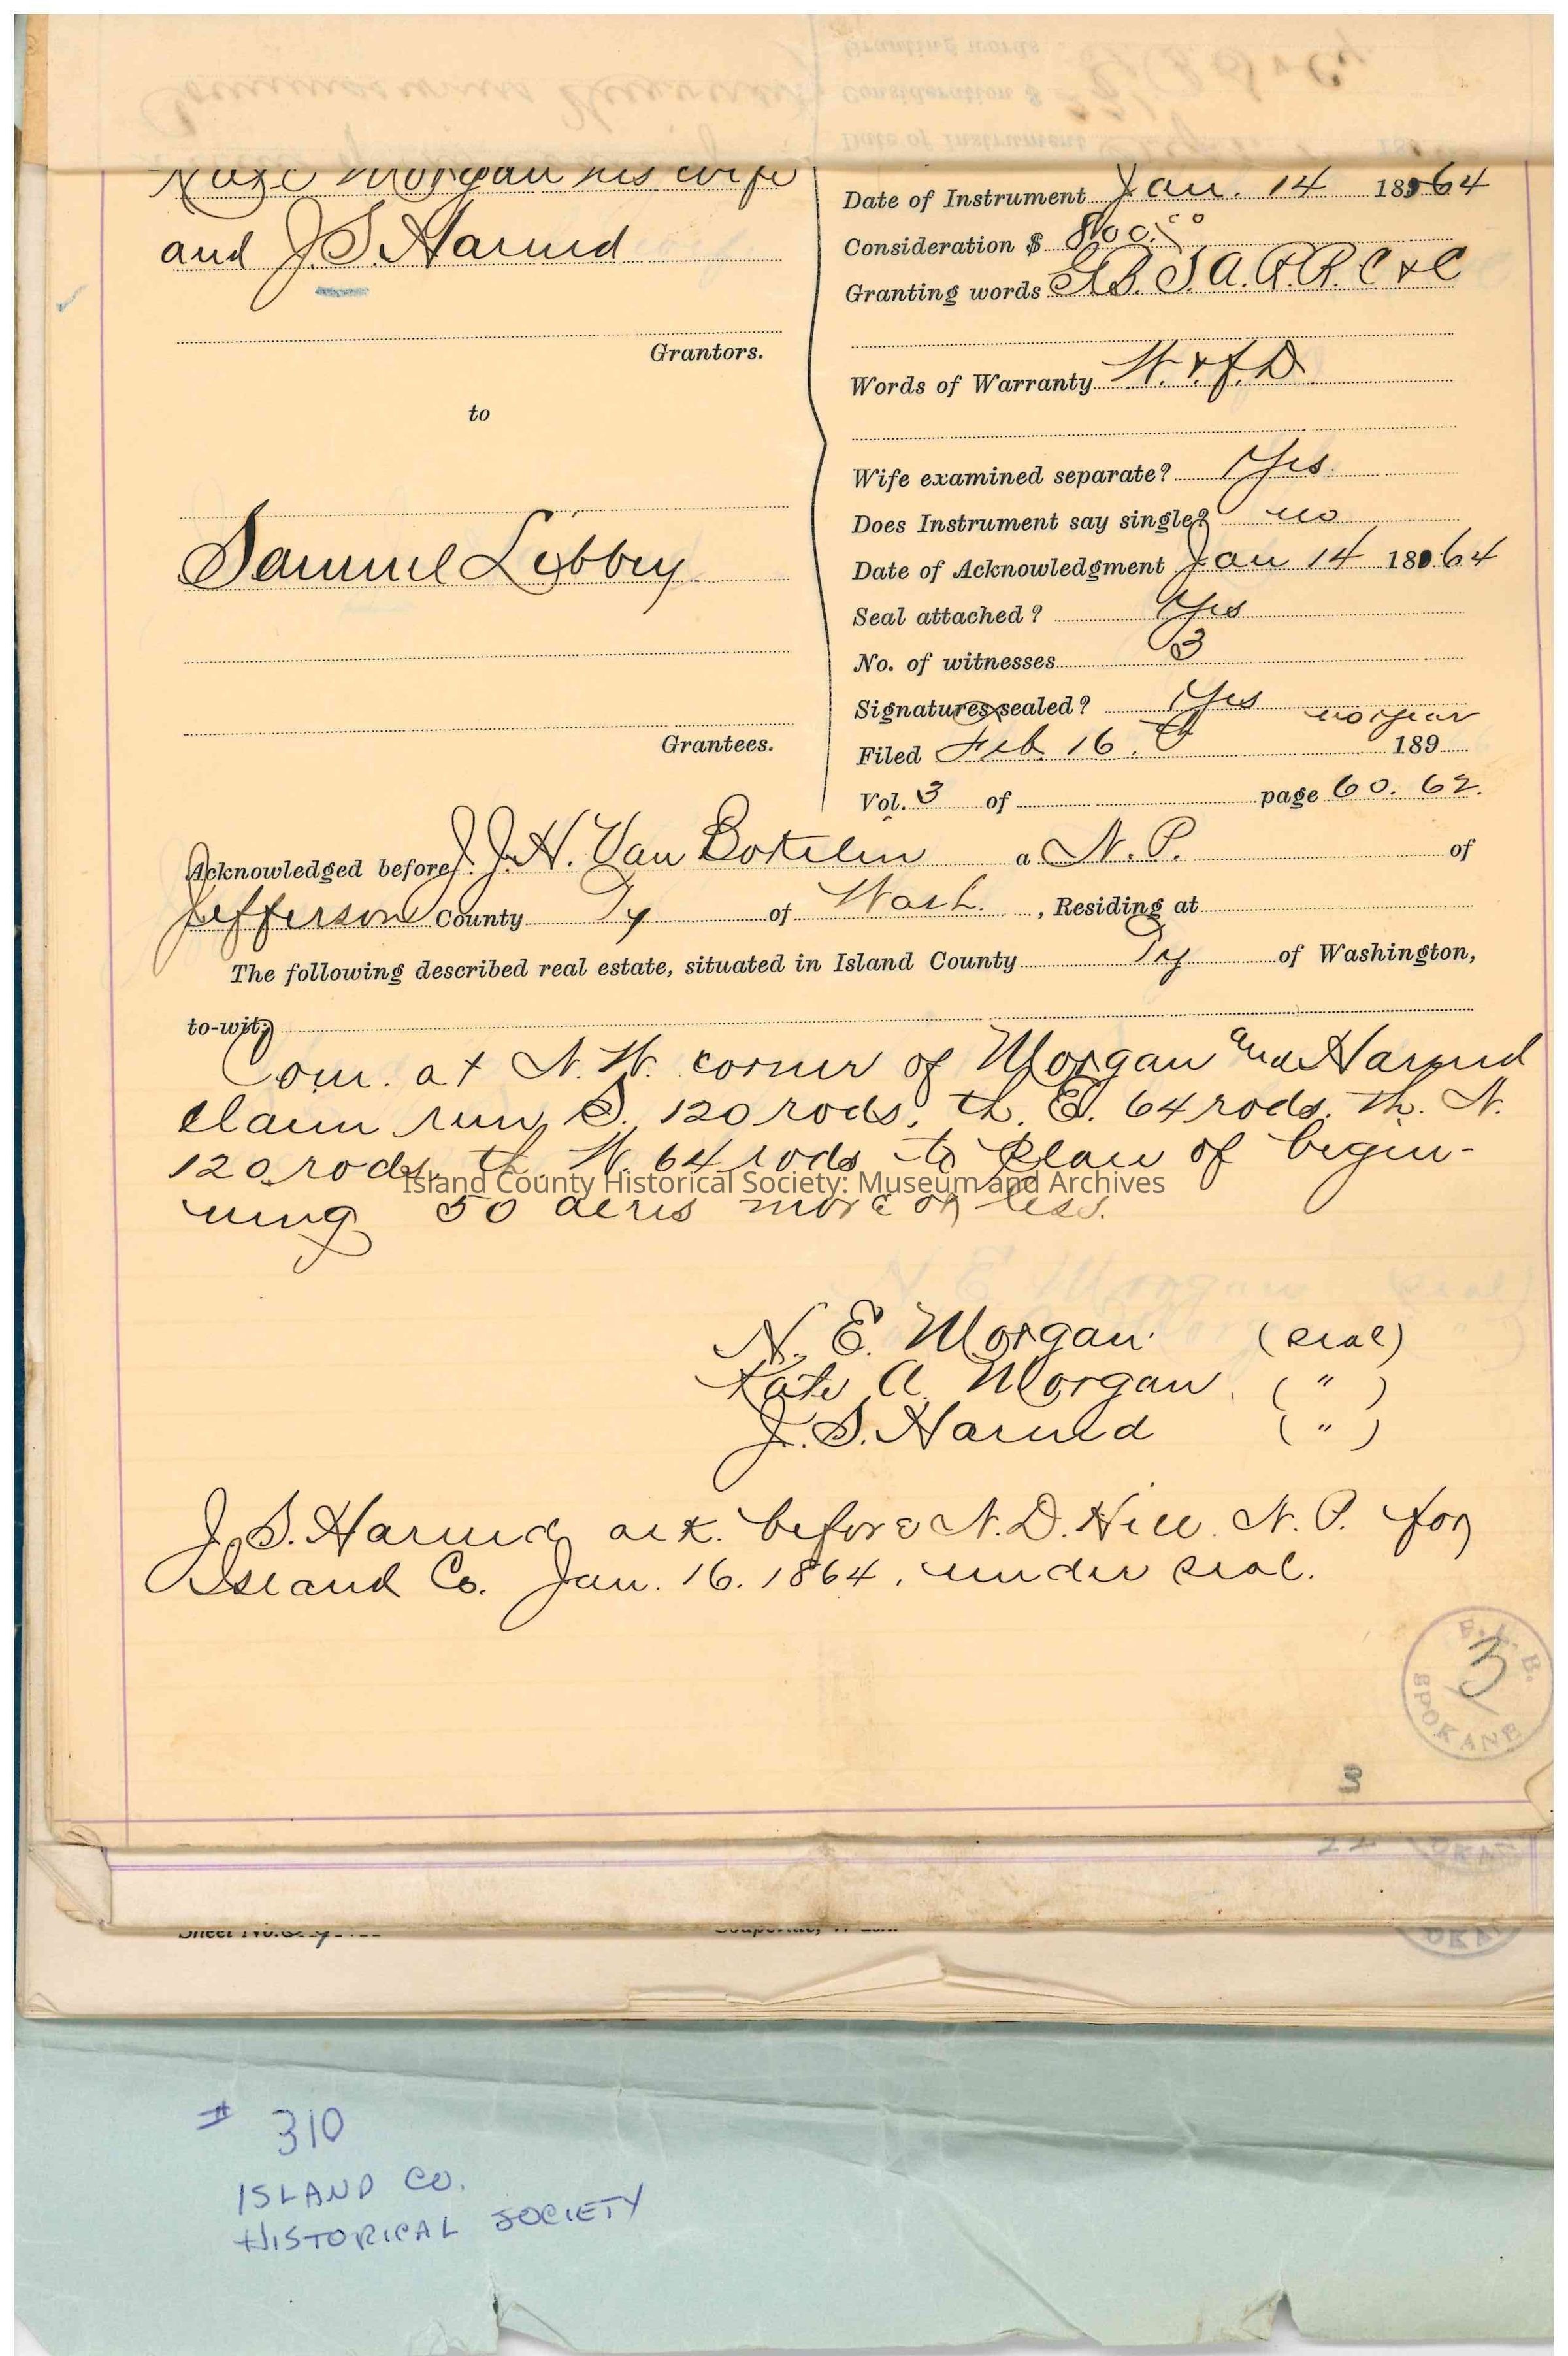 Morgan his wife
and J. S. Harned
Grantors.
to
Samuel Libbey.
Grantees.
Date of Instrument Jan. 14 1864
Consideration $ 800.00
Granting words G. B. S. A. R. R. C & C
Words of Warranty W. & f. D.
Wife examined separate? Yes.
Does Instrument say single? no
Date of Acknowledgment Jan 14 1864
Seal attached? Yes
No. of witnesses 3
Signatures sealed? Yes
no year
Filed Feb. 16. 189
Vol. 3 of page 60. 62.
Acknowledged before J. J. H. Van Bokelin a N. P. of
Jefferson County Ty of Wash. , Residing at
The following described real estate, situated in Island County Ty of Washington,
to-wit:
Com. at N. W. corner of Morgan and Harned
claim run S. 120 rods, th. E. 64 rods. th. N.
120 rods, th W. 64 rods to place of begin-
Island County Historical Society: Museum and Archives
ning 50 acres more or less.
N. E. Morgan. (seal)
Kate A. Morgan. ( " )
J. S. Harned ( " )
J. S. Harned ack. before N. D. Hill. N. P. for
Island Co. Jan. 16. 1864. under seal.
3
SPOKANE
3
22
Sheet No.
# 310
ISLAND CO.
HISTORICAL SOCIETY